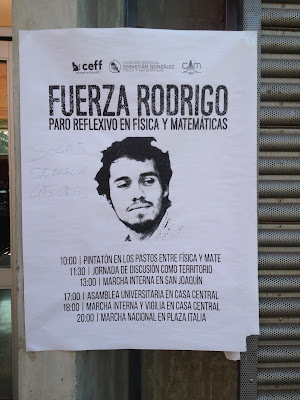 ceff
SEBASTIÁN GONZÁLEZ
FÍSICA Y MATEMÁTICAS
CAM
FUERZA RODRIGO
PARO REFLEXIVO EN FISICA Y MATEMÁTICAS
10:00 | PINTATÓN EN LOS PASTOS ENTRE FÍSICA Y MATE
11:30 | JORNADA DE DISCUSIÓN COMO TERRITORIO
13:00 | MARCHA INTERNA EN SAN JOAQUÍN
17:00 | ASAMBLEA UNIVERSITARIA EN CASA CENTRAL
18:00 | MARCHA INTERNA Y VIGILIA EN CASA CENTRAL
20:00 | MARCHA NACIONAL EN PLAZA ITALIA